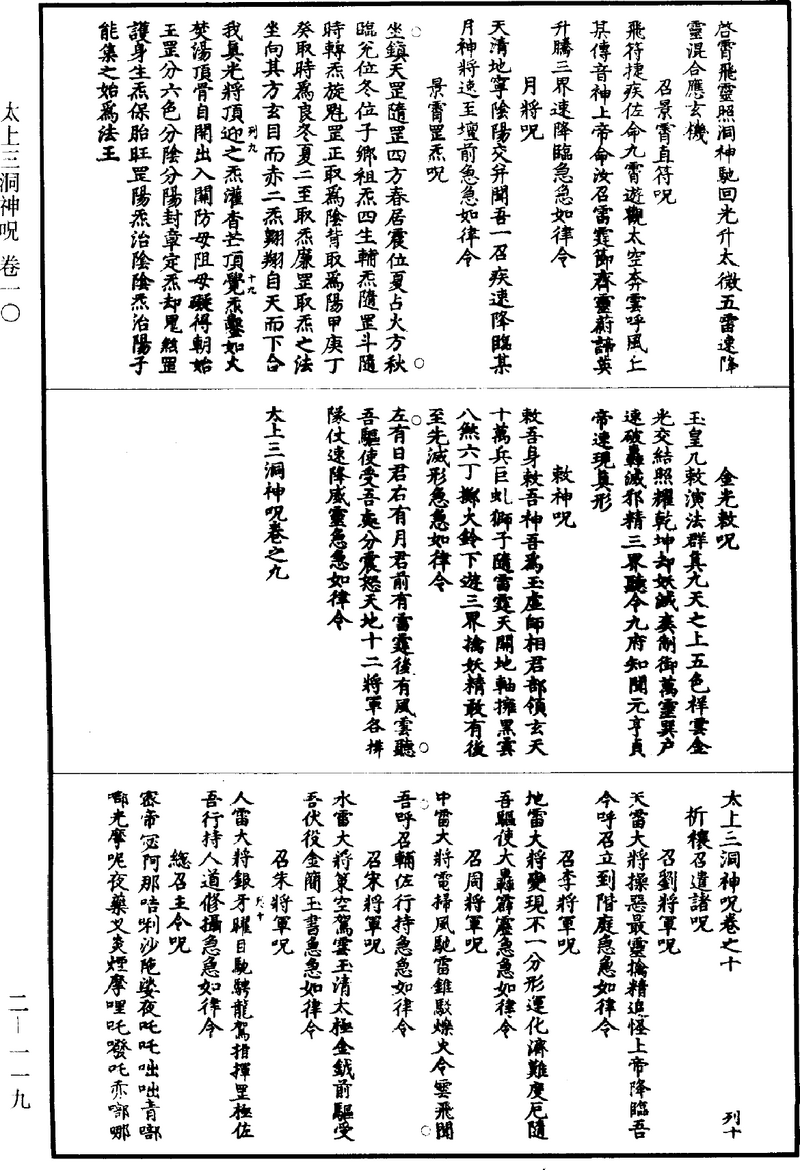 啓霄飛靈照洞神馳回光升太微五雷速降
靈混合應玄機
召景霄直符呪
飛符捷疾佐命九霄遊觀太空奔雲呼風仁
其傳音神上帝命汝召雷霆節齊靈蔚諦英
升騰三界速降臨急急如律令
月將呪
天清地寧陰陽交并聞吾一召疾速降臨某
月神將速至壇前急急如律令
景霄罡炁呪
坐鎮天罡隨罡四方春居震位夏占火方秋
臨兊位冬位子鄉祖炁四生輔炁隨罡斗隨
時轉炁旋魁罡正取爲陰背取爲陽甲庚丁
癸取時爲良冬夏二至取炁廉罡取炁之法
坐向其方玄目而赤二炁翺翔自天而下合
我真光將頂迎之炁灌杳芒頂覺炁鑿如火
列九
十九
焚湯頂骨自開出入開防毋阻毋礙得朝始
王罡分六色分陰分陽封章定炁却鬼煞罡
護身生炁保胎旺罡陽炁治陰陰炁治陽子
能集之始爲法王
金光敕呪
玉皇几敕演法群真九天之上五色祥雲金
光交結照耀乾坤却妖滅䘮制御萬靈巽户
速破轟滅邪精三界聽令九府知聞元亨貞
帝速現真形
敕神呪
敕吾身敕吾神吾爲玉虛師相君部領玄天
十萬兵巨虬獅子隨雷霆天開地軸擁黑雲
八煞六丁擲火鈴下遊三界擒妖精敢有後
至先滅形急急如律令
左有日君右有月君前有雷霆後有風雲聽
吾驅使受吾處分震怒天地十二將軍各排
隊仗速降威靈急急如律令
太上三洞神呪卷之九
太上三洞神呪卷之十
列十
祈禳召遣諸呪
召劉將軍呪
天雷大將操惡最靈擒精追怪上帝降臨吾
今呼召立到階庭急急如律令
召李將軍呪
地雷大將變現不一分形運化濟難度厄隨
吾驅使大轟霹靂急急如律令
召周將軍呪
中雷大將電掃風馳雷錐駁爍火令雲飛聞
吾呼召輔佐行持急急如律令
召宋將軍呪
水雷大將篆空駕雲玉清太極金鉞前驅受
吾伏役金簡玉書急急如律令
召朱將軍呪
人雷大將銀牙曜目馳騁龍駕指揮罡極佐
吾行持人道修攝急急如律令
總召主令呪
密帝𡨋阿那唔唎沙陁娑夜吒吒咄咄青㗙
㗙光摩呢夜藥叉炎煙摩哩吒㗶吒赤㗙哪
太上三洞神呪 卷一〇
二—一一九